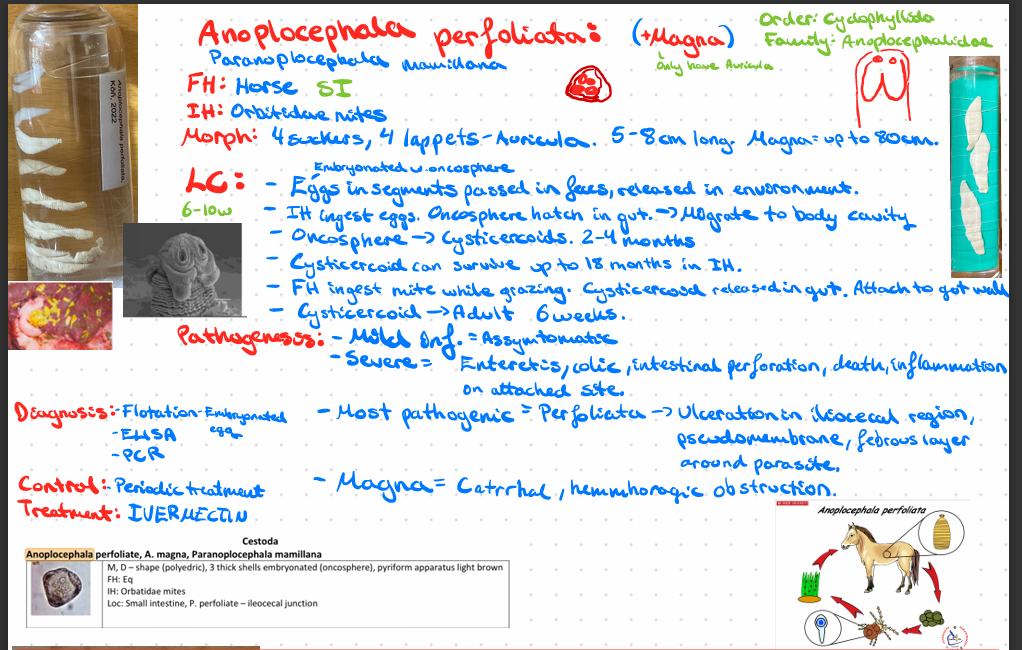 Anoplocephala perfoliata: (+Magna)
Order: Cyclophyllida
Family: Anoplocephalidae
Paranoplocephala mamillana
only have Auricula
FH: Horse SI
IH: Orbitidae mites
Morph: 4 suckers, 4 lappets - Auricula. 5-8cm long. Magna = up to 80cm.
Embryonated w. oncosphere
LC: - Eggs in segments passed in feces, released in environment.
6-10w
- IH ingest eggs. Oncosphere hatch in gut. -> Migrate to body cavity
- Oncosphere -> Cysticercoids. 2-4 months
- Cysticercoid can survive up to 18 months in IH.
- FH ingest mite while grazing. Cysticercoid released in gut. Attach to gut wall
- Cysticercoid -> Adult 6 weeks.
Pathogenesis: - Mild Inf. = Assymtomatic
- Severe = Enteretis, colic, intestinal perforation, death, inflammation
on attached site.
Diagnosis: - Flotation - Embryonated
egg
- ELISA
- PCR
- Most pathogenic = Perfoliata -> Ulceration in iliocecal region,
pseudomembrane, febrous layer
around parasite.
Control: - Periodic treatment
- Magna = Catrrhal, hemmhoragic obstruction.
Treatment: IVERMECTIN
Cestoda
Anoplocephala perfoliate, A. magna, Paranoplocephala mamillana
M, D – shape (polyedric), 3 thick shells embryonated (oncosphere), pyriform apparatus light brown
FH: Eq
IH: Orbatidae mites
Loc: Small intestine, P. perfoliate – ileocecal junction
Anoplocephala perfoliata
Anoplocephala perfoliata,
Kön. 2022